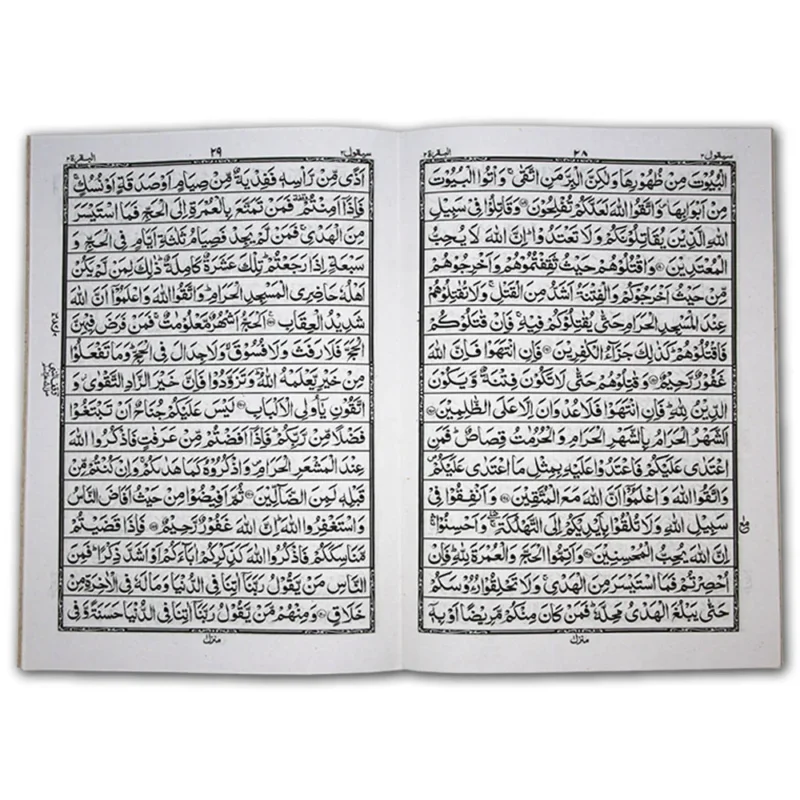 سيقول ٢
٢٨
البقرة ٢
الْبُيُوْتَ مِنْ ظُهُوْرِهَا وَلٰكِنَّ الْبِرَّ مَنِ اتَّقٰى ۚ وَاْتُوا الْبُيُوْتَ
مِنْ اَبْوَابِهَا ۪ وَاتَّقُوا اللّٰهَ لَعَلَّكُمْ تُفْلِحُوْنَ ۝ وَقَاتِلُوْا فِيْ سَبِيْلِ
اللّٰهِ الَّذِيْنَ يُقَاتِلُوْنَكُمْ وَلَا تَعْتَدُوْا ؕ اِنَّ اللّٰهَ لَا يُحِبُّ
الْمُعْتَدِيْنَ ۝ وَاقْتُلُوْهُمْ حَيْثُ ثَقِفْتُمُوْهُمْ وَاَخْرِجُوْهُمْ
مِّنْ حَيْثُ اَخْرَجُوْكُمْ وَالْفِتْنَةُ اَشَدُّ مِنَ الْقَتْلِ ۚ وَلَا تُقٰتِلُوْهُمْ
عِنْدَ الْمَسْجِدِ الْحَرَامِ حَتّٰى يُقٰتِلُوْكُمْ فِيْهِ ۚ فَاِنْ قٰتَلُوْكُمْ
فَاقْتُلُوْهُمْ ؕ كَذٰلِكَ جَزَآءُ الْكٰفِرِيْنَ ۝ فَاِنِ انْتَهَوْا فَاِنَّ اللّٰهَ
غَفُوْرٌ رَّحِيْمٌ ۝ وَقٰتِلُوْهُمْ حَتّٰى لَا تَكُوْنَ فِتْنَةٌ وَّيَكُوْنَ
الدِّيْنُ لِلّٰهِ ؕ فَاِنِ انْتَهَوْا فَلَا عُدْوَانَ اِلَّا عَلَى الظّٰلِمِيْنَ ۝
اَلشَّهْرُ الْحَرَامُ بِالشَّهْرِ الْحَرَامِ وَالْحُرُمٰتُ قِصَاصٌ ؕ فَمَنِ
اعْتَدٰى عَلَيْكُمْ فَاعْتَدُوْا عَلَيْهِ بِمِثْلِ مَا اعْتَدٰى عَلَيْكُمْ ۪
وَاتَّقُوا اللّٰهَ وَاعْلَمُوْۤا اَنَّ اللّٰهَ مَعَ الْمُتَّقِيْنَ ۝ وَاَنْفِقُوْا فِيْ
سَبِيْلِ اللّٰهِ وَلَا تُلْقُوْا بِاَيْدِيْكُمْ اِلَى التَّهْلُكَةِ ۚۛ وَاَحْسِنُوْا ۚۛ
اِنَّ اللّٰهَ يُحِبُّ الْمُحْسِنِيْنَ ۝ وَاَتِمُّوا الْحَجَّ وَالْعُمْرَةَ لِلّٰهِ ؕ فَاِنْ
اُحْصِرْتُمْ فَمَا اسْتَيْسَرَ مِنَ الْهَدْيِ ۚ وَلَا تَحْلِقُوْا رُءُوْسَكُمْ
حَتّٰى يَبْلُغَ الْهَدْيُ مَحِلَّهٗ ؕ فَمَنْ كَانَ مِنْكُمْ مَّرِيْضًا اَوْ بِهٖۤ
منزل
سيقول ٢
٢٩
البقرة ٢
اَذًى مِّنْ رَّاْسِهٖ فَفِدْيَةٌ مِّنْ صِيَامٍ اَوْ صَدَقَةٍ اَوْ نُسُكٍ ۚ
فَاِذَاۤ اَمِنْتُمْ فَمَنْ تَمَتَّعَ بِالْعُمْرَةِ اِلَى الْحَجِّ فَمَا اسْتَيْسَرَ
مِنَ الْهَدْيِ ۚ فَمَنْ لَّمْ يَجِدْ فَصِيَامُ ثَلٰثَةِ اَيَّامٍ فِي الْحَجِّ وَ
سَبْعَةٍ اِذَا رَجَعْتُمْ ؕ تِلْكَ عَشَرَةٌ كَامِلَةٌ ؕ ذٰلِكَ لِمَنْ لَّمْ يَكُنْ
اَهْلُهٗ حَاضِرِى الْمَسْجِدِ الْحَرَامِ ؕ وَاتَّقُوا اللّٰهَ وَاعْلَمُوْۤا اَنَّ اللّٰهَ
شَدِيْدُ الْعِقَابِ ۝ اَلْحَجُّ اَشْهُرٌ مَّعْلُوْمٰتٌ ۚ فَمَنْ فَرَضَ فِيْهِنَّ
الْحَجَّ فَلَا رَفَثَ وَلَا فُسُوْقَ ۙ وَلَا جِدَالَ فِي الْحَجِّ ؕ وَمَا تَفْعَلُوْا
مِنْ خَيْرٍ يَّعْلَمْهُ اللّٰهُ ؔؕ وَتَزَوَّدُوْا فَاِنَّ خَيْرَ الزَّادِ التَّقْوٰى ۫ وَ
اتَّقُوْنِ يٰۤاُولِي الْاَلْبَابِ ۝ لَيْسَ عَلَيْكُمْ جُنَاحٌ اَنْ تَبْتَغُوْا
فَضْلًا مِّنْ رَّبِّكُمْ ؕ فَاِذَاۤ اَفَضْتُمْ مِّنْ عَرَفٰتٍ فَاذْكُرُوا اللّٰهَ
عِنْدَ الْمَشْعَرِ الْحَرَامِ ۪ وَاذْكُرُوْهُ كَمَا هَدٰىكُمْ ۚ وَاِنْ كُنْتُمْ مِّنْ
قَبْلِهٖ لَمِنَ الضَّآلِّيْنَ ۝ ثُمَّ اَفِيْضُوْا مِنْ حَيْثُ اَفَاضَ النَّاسُ
وَاسْتَغْفِرُوا اللّٰهَ ؕ اِنَّ اللّٰهَ غَفُوْرٌ رَّحِيْمٌ ۝ فَاِذَا قَضَيْتُمْ
مَّنَاسِكَكُمْ فَاذْكُرُوا اللّٰهَ كَذِكْرِكُمْ اٰبَآءَكُمْ اَوْ اَشَدَّ ذِكْرًا ؕ فَمِنَ
النَّاسِ مَنْ يَّقُوْلُ رَبَّنَاۤ اٰتِنَا فِي الدُّنْيَا وَمَا لَهٗ فِي الْاٰخِرَةِ مِنْ
خَلَاقٍ ۝ وَمِنْهُمْ مَّنْ يَّقُوْلُ رَبَّنَاۤ اٰتِنَا فِي الدُّنْيَا حَسَنَةً وَّفِي
منزل